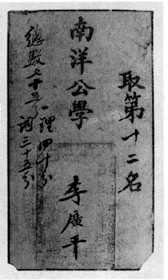 取第十二名
南洋公學 李廣平
總數七十五分 理四十分
詞三十五分